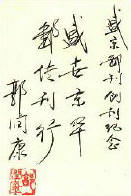 盛京邮刊创刊纪念
盛世京華
郵传刊行
郭润康